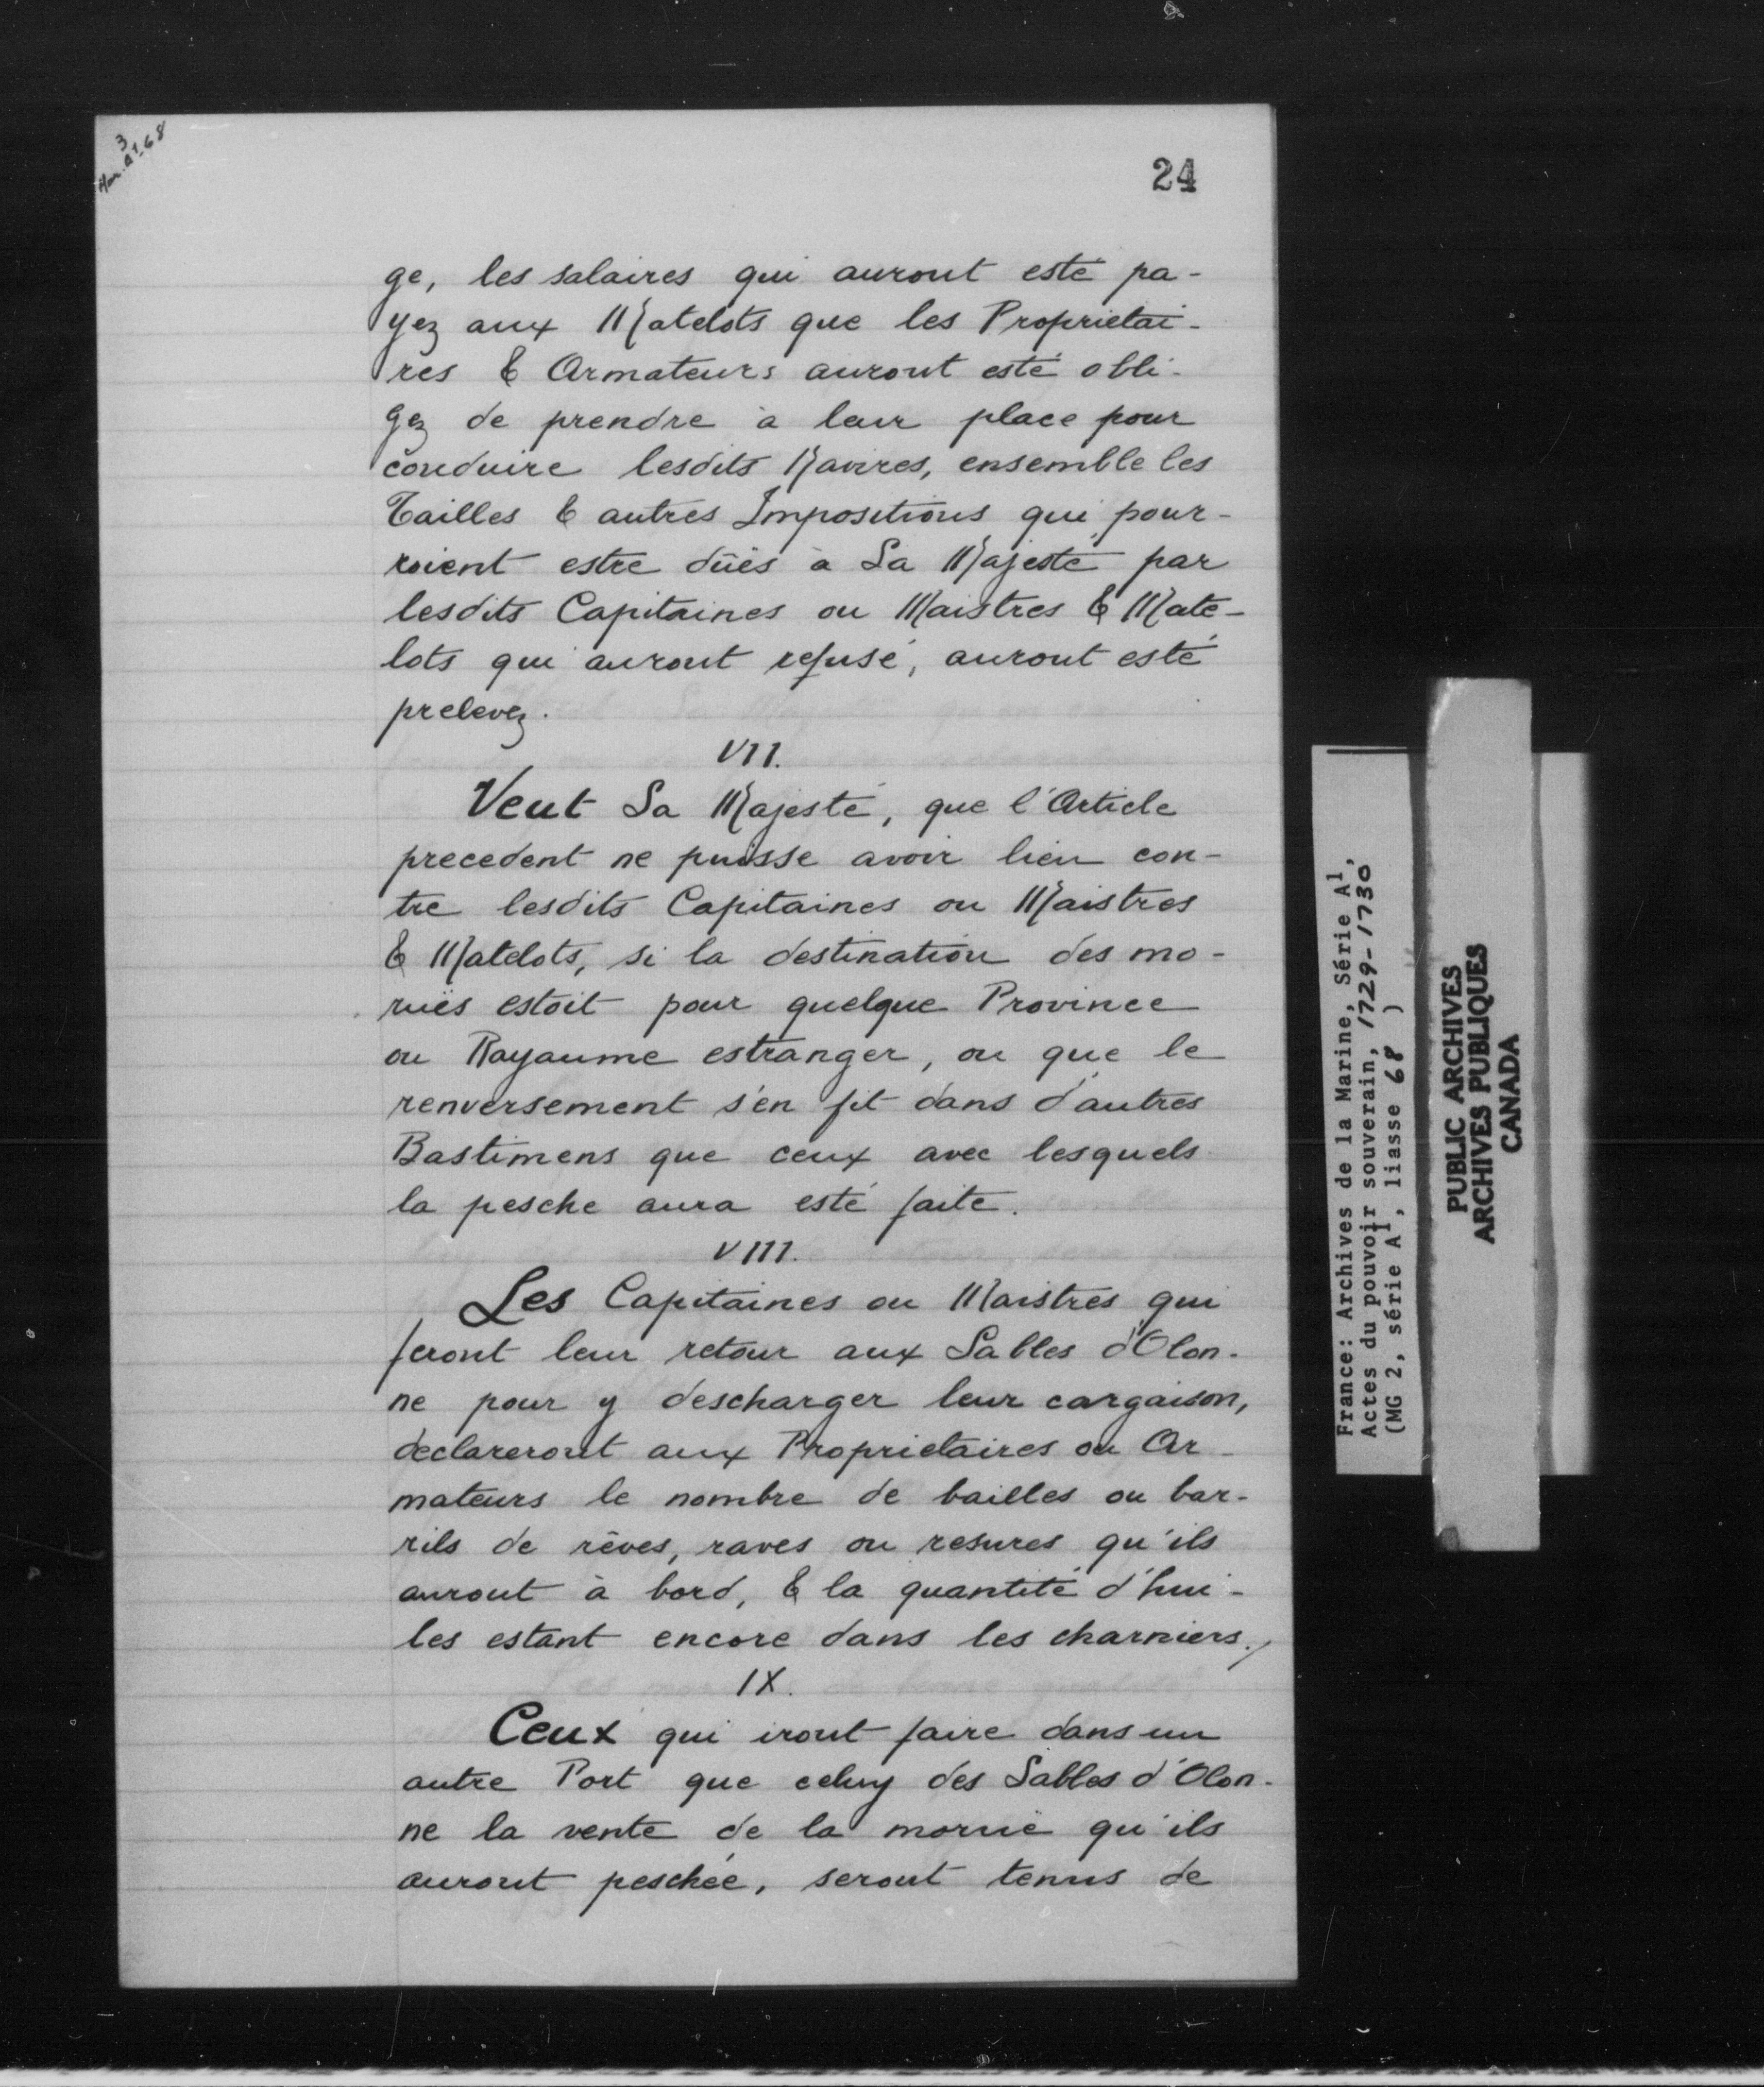 3
Mar. A1-68
24
ge, les salaires qui auront esté pa-
yez aux Matelots que les Proprietai-
res & Armateurs auront esté obli-
gez de prendre à leur place pour
conduire lesdits Navires, ensemble les
Tailles & autres Impositions qui pour-
roient estre dûës à Sa Majesté par
lesdits Capitaines ou Maistres & Mate-
lots qui auront refusé, auront esté
prelevez.
VII.
Veut Sa Majesté, que l'Article
precedent ne puisse avoir lieu con-
tre lesdits Capitaines ou Maistres
& Matelots, si la destination des mo-
ruës estoit pour quelque Province
ou Royaume estranger, ou que le
renversement s'en fit dans d'autres
Bastimens que ceux avec lesquels
la pesche aura esté faite.
VIII.
Les Capitaines ou Maistres qui
feront leur retour aux Sables d'Olon-
ne pour y descharger leur cargaison,
declareront aux Proprietaires ou Ar-
mateurs le nombre de bailles ou bar-
rils de rêves, raves ou resures qu'ils
auront à bord, & la quantité d'hui-
les estant encore dans les charniers.
IX.
Ceux qui iront faire dans un
autre Port que celuy des Sables d'Olon-
ne la vente de la moruë qu'ils
auront peschée, seront tenus de
France: Archives de la Marine, Série A1,
Actes du pouvoir souverain, 1729-1730
(MG 2, série A1, liasse 68 )
PUBLIC ARCHIVES
ARCHIVES PUBLIQUES
CANADA